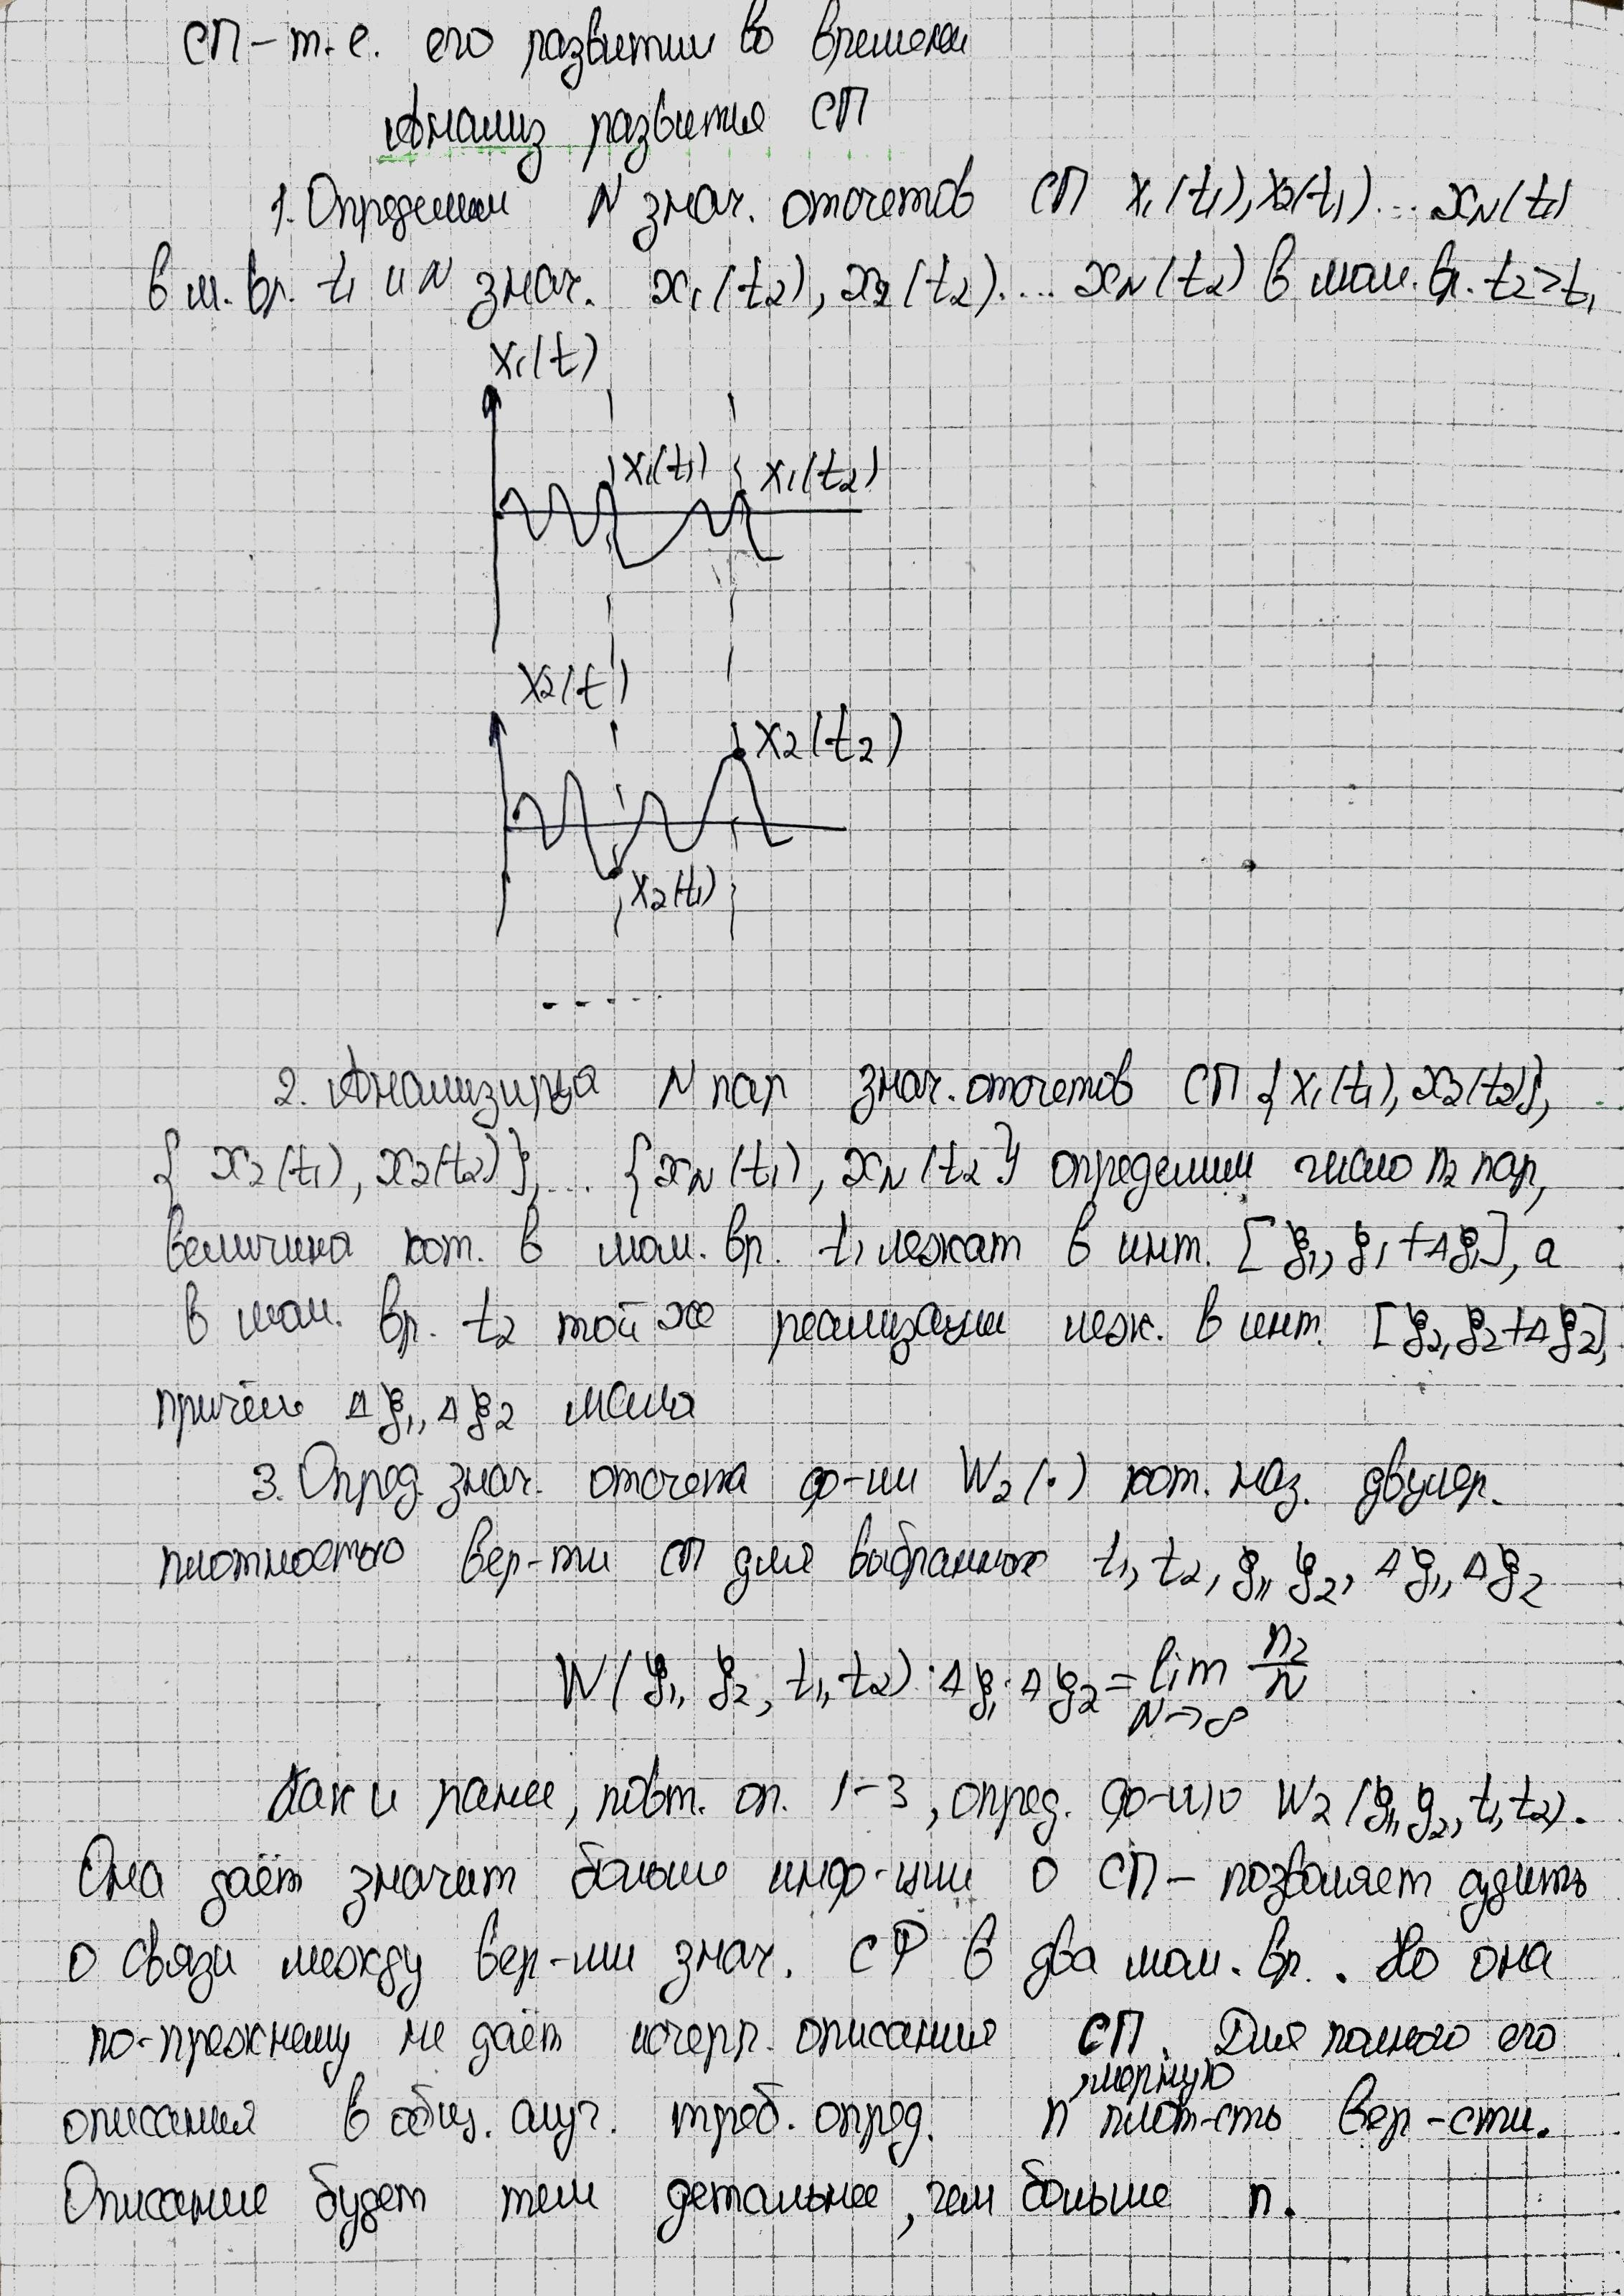 СП – т.е. его развитии во времени
Анализ развития СП
1. Определим N знач. отсчетов СП x₁(t₁), x₂(t₁)... x_N(t₁)
в м. вр. t₁ и N знач. x₁(t₂), x₂(t₂).... x_N(t₂) в мом. вр. t₂>t₁
x₁(t)
x₁(t₁) x₁(t₂)
x₂(t)
x₂(t₂)
x₂(t₁)
- - - - -
2. Анализируя N пар знач. отсчетов СП {x₁(t₁), x₂(t₂)},
{x₂(t₁), x₂(t₂)},... {x_N(t₁), x_N(t₂} определим число n₂ пар,
величина кот. в мом. вр. t₁ лежат в инт. [ξ₁, ξ₁+Δξ₁], а
в мом. вр. t₂ той же реализации леж. в инт. [ξ₂, ξ₂+Δξ₂],
причём Δξ₁, Δξ₂ мала
3. Опред. знач. отсчета ф-ии W₂(·) кот. наз. двумер.
плотностью вер-ти СП для выбранного t₁, t₂, ξ₁, ξ₂, Δξ₁, Δξ₂
W(ξ₁, ξ₂, t₁, t₂)·Δξ₁·Δξ₂ = lim n₂/N
N→∞
Как и ранее, повт. оп. 1-3, опред. ф-ию W₂(ξ₁, ξ₂, t₁, t₂).
Она даёт значит больше инф-ции о СП – позволяет судить
о связи между вер-ми знач. СФ в два мом. вр. . Но она
по-прежнему не даёт исчерп. описания СП. Для полного его
мерную
описания в общ. случ. треб. опред. n плот-сть вер-сти.
Описание будет тем детальнее, чем больше n.